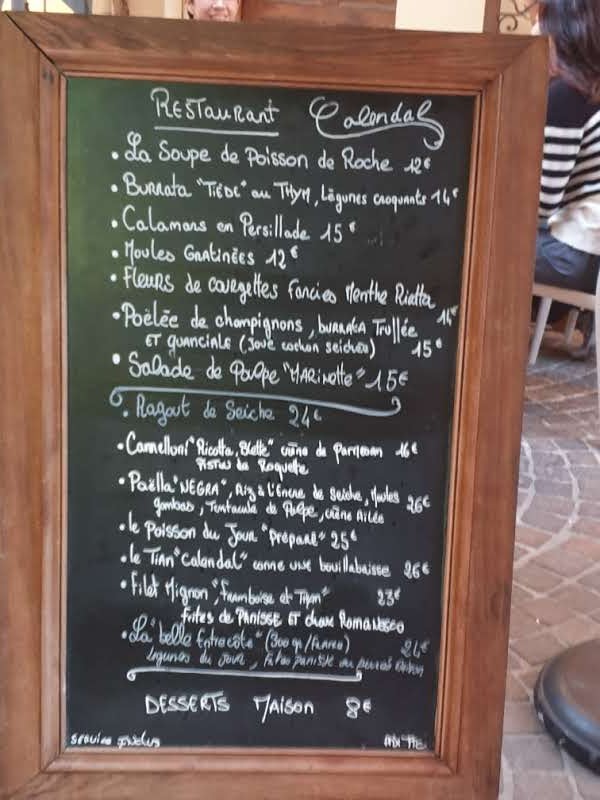 Restaurant Calendal
• La Soupe de Poisson de Roche 12€
• Burrata "Tiède" au Thym, Légunes croquants 14€
• Calamars en Persillade 15€
• Moules Gratinées 12€
• Fleurs de courgettes farcies Menthe Ricotta 14€
• Poêlée de champignons, burrata Truffée
et guanciale (Joue cochon seichée) 15€
• Salade de Poulpe "Marinette" 15€
• Ragout de Seiche 24€
• Cannelloni "Ricotta, Blette" crème de Parmesan 16€
Pistou de Roquette
• Paëlla "NEGRA", Riz à l'Encre de Seiche, Moules
gambas, Tentacule de Poulpe, crème Ailée 26€
• le Poisson du Jour "préparé" 25€
• le Tian "Calendal" comme une bouillabaisse 26€
• Filet Mignon, "framboise et Thym" 23€
frites de Panisse et choux Romanesco
• La "belle Entrecôte" (300 gr/) 24€
légumes du jour, panisse ou
DESSERTS Maison 8€
Service Inclus